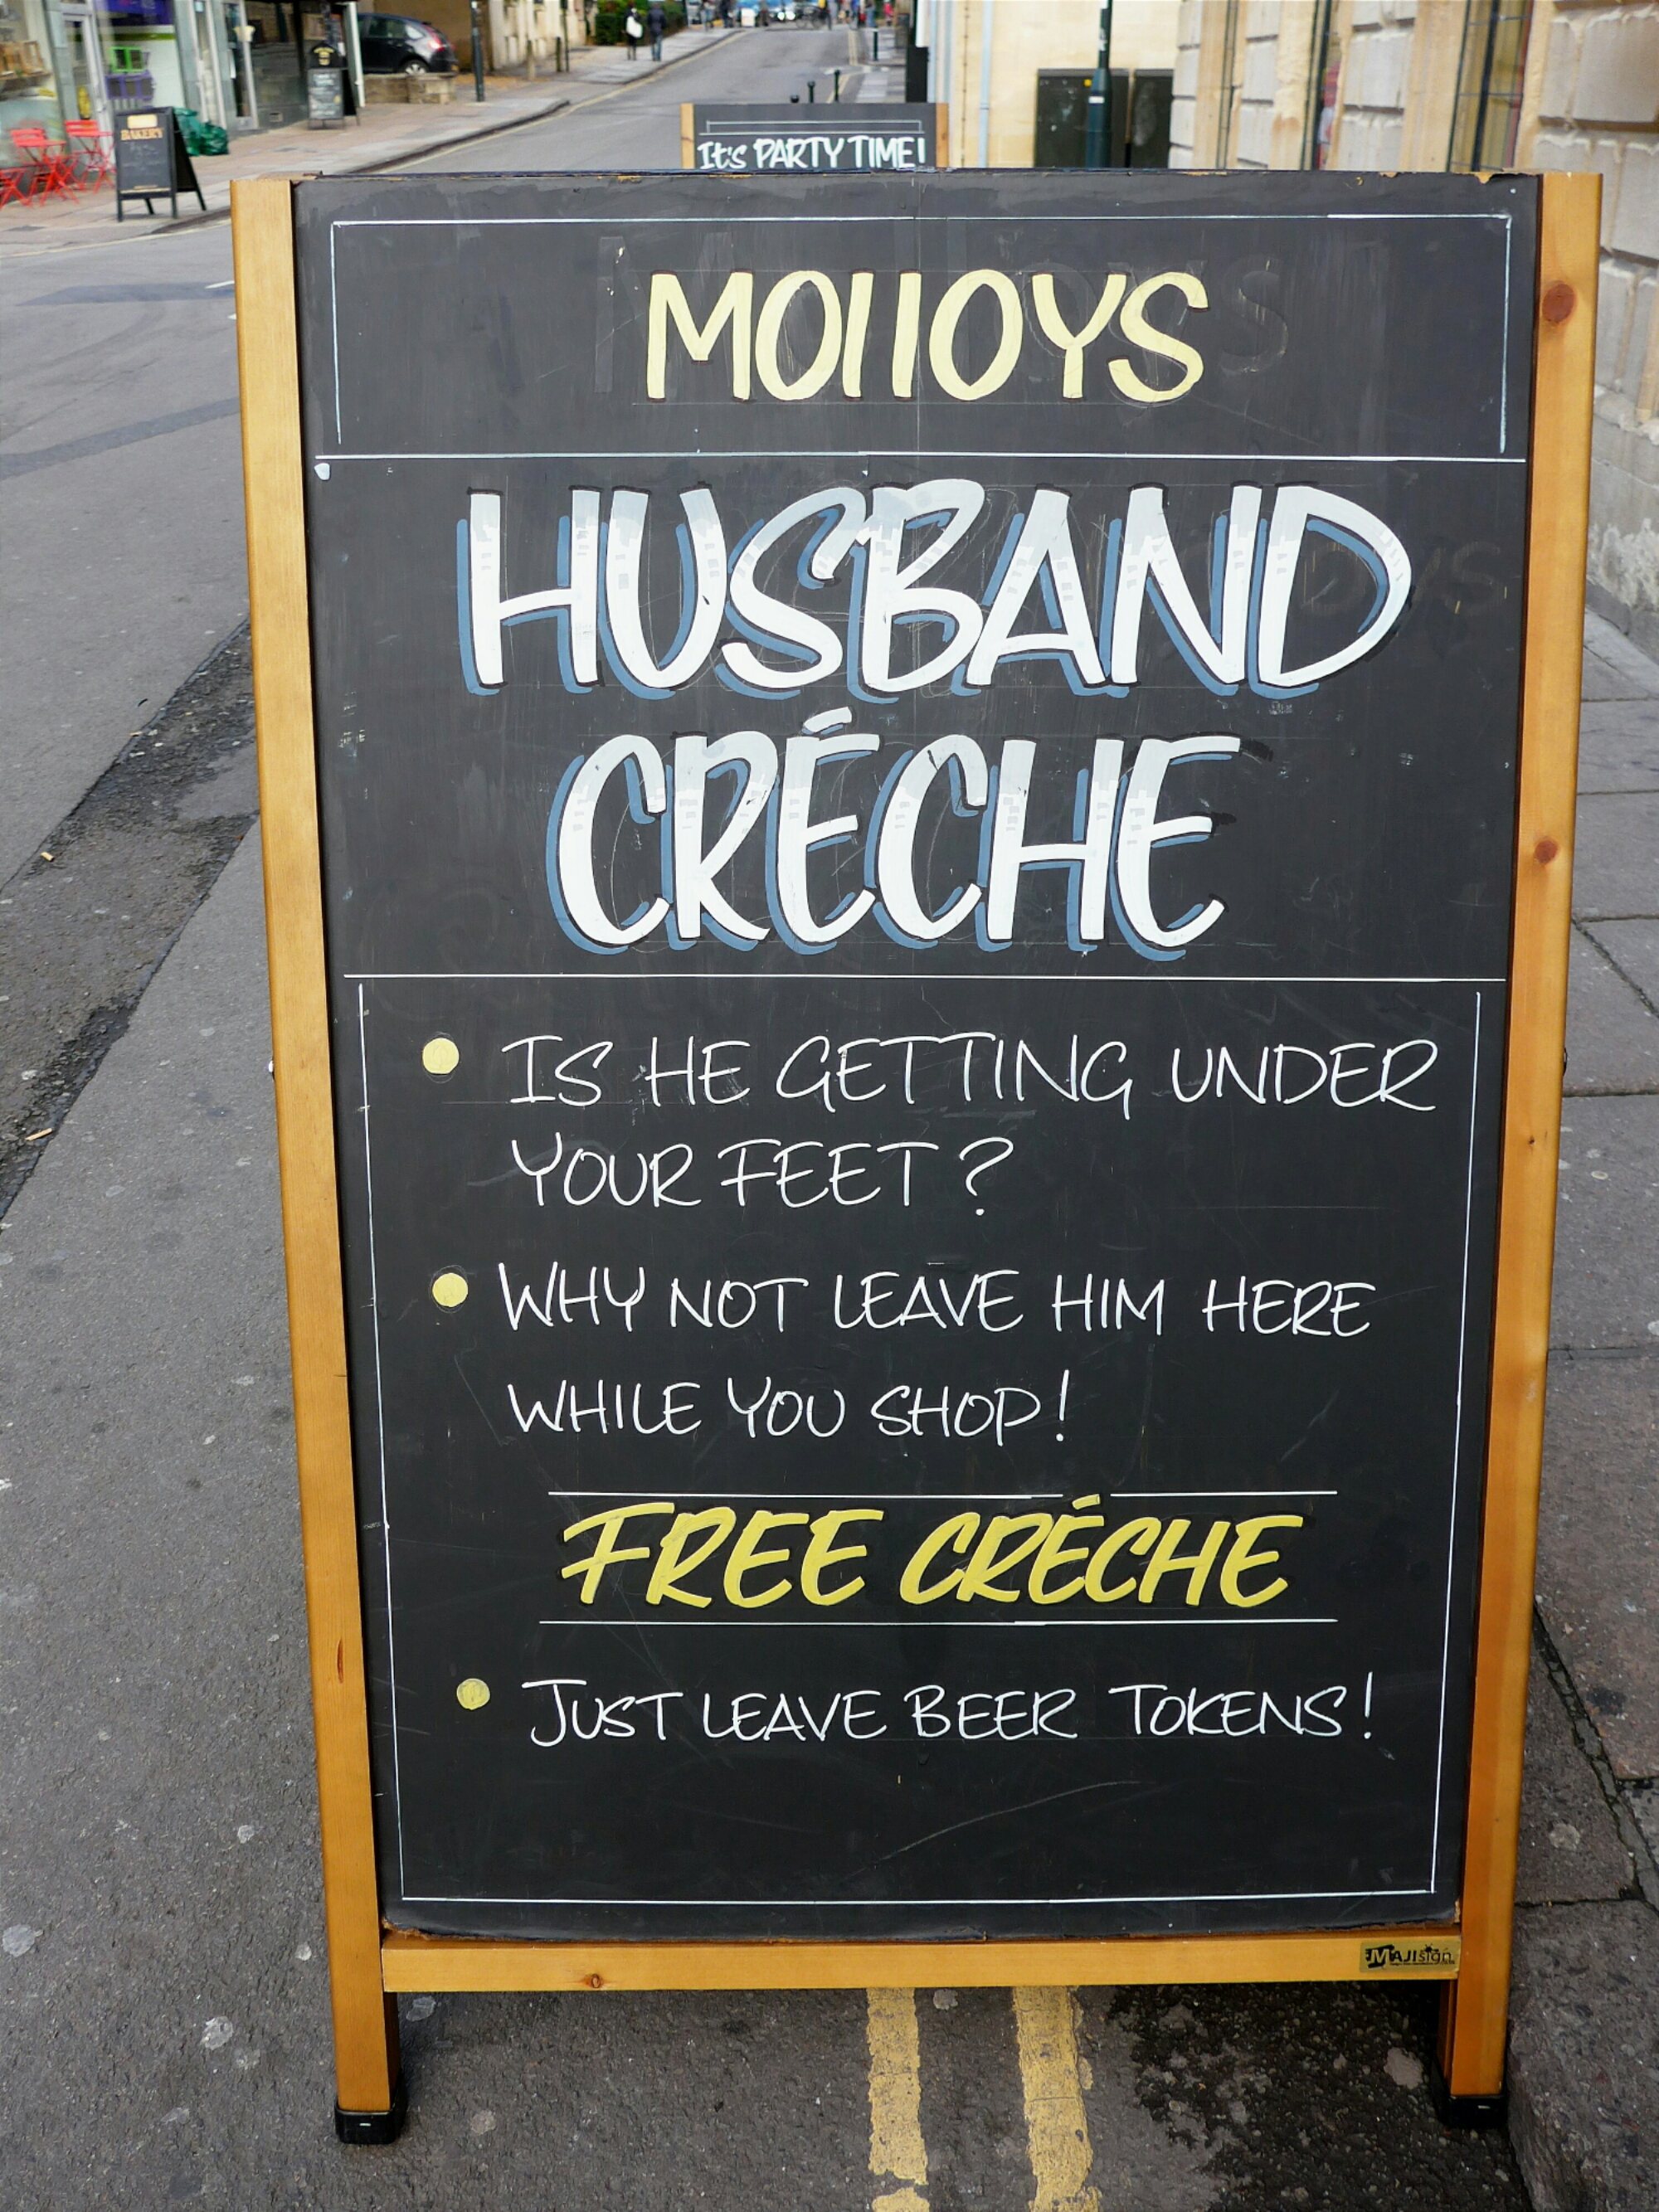 BAKERY
It's PARTY TIME!
MOllOYS
HUSBAND
CRÉCHE
IS HE GETTING UNDER
YOUR FEET?
WHY NOT LEAVE HIM HERE
WHILE YOU SHOP!
FREE CRÉCHE
JUST LEAVE BEER TOKENS!
MAJIsign